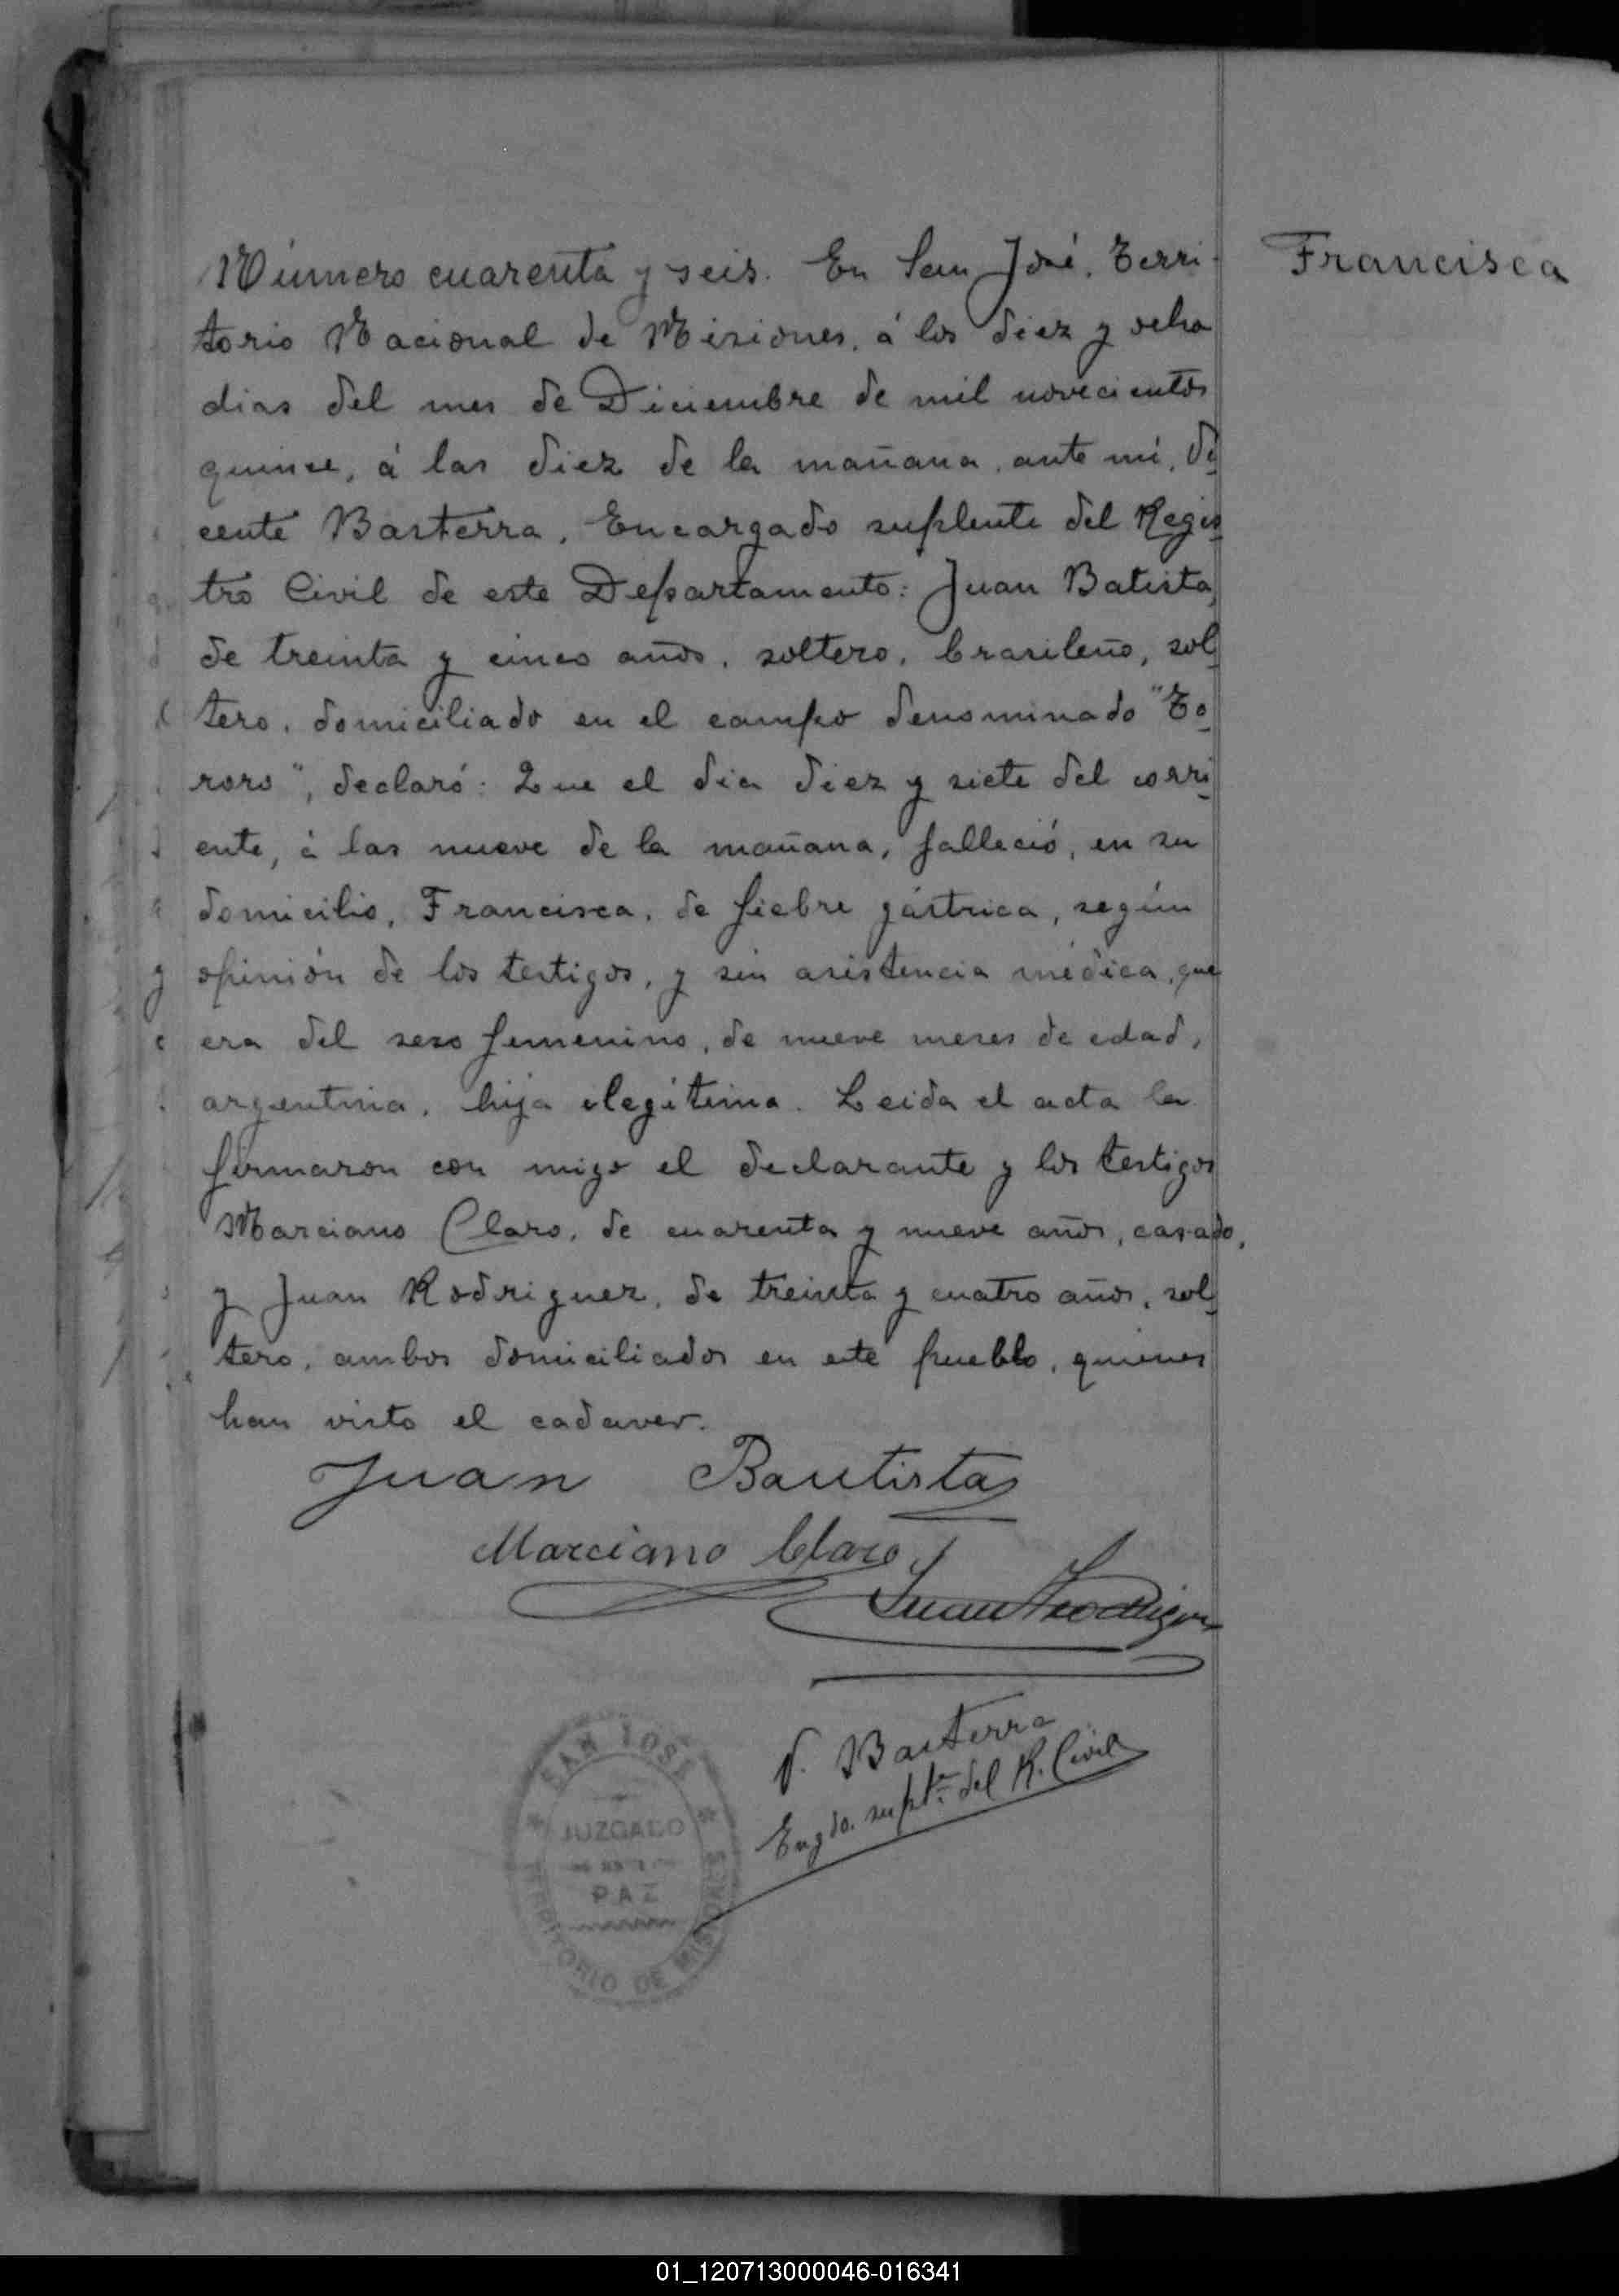 Francisca
Número cuarenta y seis. En San José, Terri-
torio Nacional de Misiones, á los diez y ocho
dias del mes de Diciembre de mil novecientos
quince, á las diez de la mañana, ante mí, Vi
cente Basterra, Encargado suplente del Regis
tro Civil de este Departamento: Juan Batista,
de treinta y cinco años, soltero, brasileño, sol
tero, domiciliado en el campo denominado "To
roro", declaró: Que el dia diez y siete del corri
ente, á las nueve de la mañana, falleció, en su
domicilio, Francisca, de fiebre gástrica, según
opinión de los testigos, y sin asistencia médica, que
era del sexo femenino, de nueve meses de edad,
argentina, hija ilegítima. Leida el acta la
firmaron con migo el declarante y los testigos
Marciano Claro, de cuarenta y nueve años, casado,
y Juan Rodriguez, de treinta y cuatro años, sol
tero, ambos domiciliados en este pueblo, quienes
han visto el cadaver.
Juan Bautista
Marciano Claro
Juan Rodriguez
V. Basterra
Engdo. supte. del R. Civil
SAN JOSÉ
JUZGADO
PAZ
TERRITORIO DE MISIONES
01_120713000046-016341